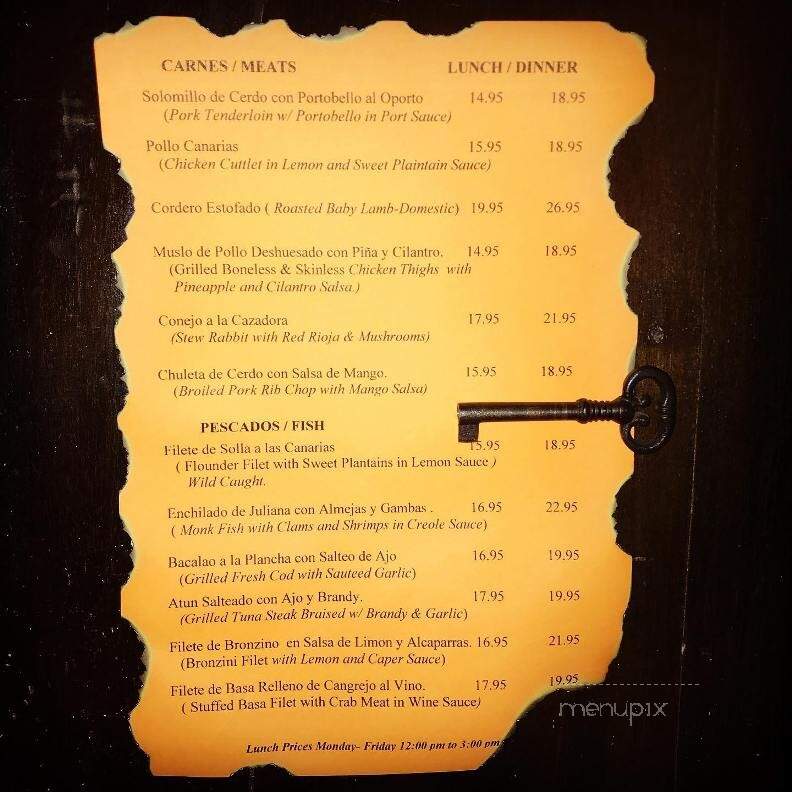 CARNES / MEATS LUNCH / DINNER
Solomillo de Cerdo con Portobello al Oporto 14.95 18.95
(Pork Tenderloin w/ Portobello in Port Sauce)
Pollo Canarias 15.95 18.95
(Chicken Cuttlet in Lemon and Sweet Plaintain Sauce)
Cordero Estofado ( Roasted Baby Lamb-Domestic) 19.95 26.95
Muslo de Pollo Deshuesado con Piña y Cilantro. 14.95 18.95
(Grilled Boneless & Skinless Chicken Thighs with
Pineapple and Cilantro Salsa.)
Conejo a la Cazadora 17.95 21.95
(Stew Rabbit with Red Rioja & Mushrooms)
Chuleta de Cerdo con Salsa de Mango. 15.95 18.95
(Broiled Pork Rib Chop with Mango Salsa)
PESCADOS / FISH
Filete de Solla a las Canarias 15.95 18.95
( Flounder Filet with Sweet Plantains in Lemon Sauce )
Wild Caught.
Enchilado de Juliana con Almejas y Gambas . 16.95 22.95
( Monk Fish with Clams and Shrimps in Creole Sauce)
Bacalao a la Plancha con Salteo de Ajo 16.95 19.95
(Grilled Fresh Cod with Sauteed Garlic)
Atun Salteado con Ajo y Brandy. 17.95 19.95
(Grilled Tuna Steak Braised w/ Brandy & Garlic)
Filete de Bronzino en Salsa de Limon y Alcaparras. 16.95 21.95
(Bronzini Filet with Lemon and Caper Sauce)
Filete de Basa Relleno de Cangrejo al Vino. 17.95 19.95
( Stuffed Basa Filet with Crab Meat in Wine Sauce)
menupix
Lunch Prices Monday- Friday 12:00 pm to 3:00 pm